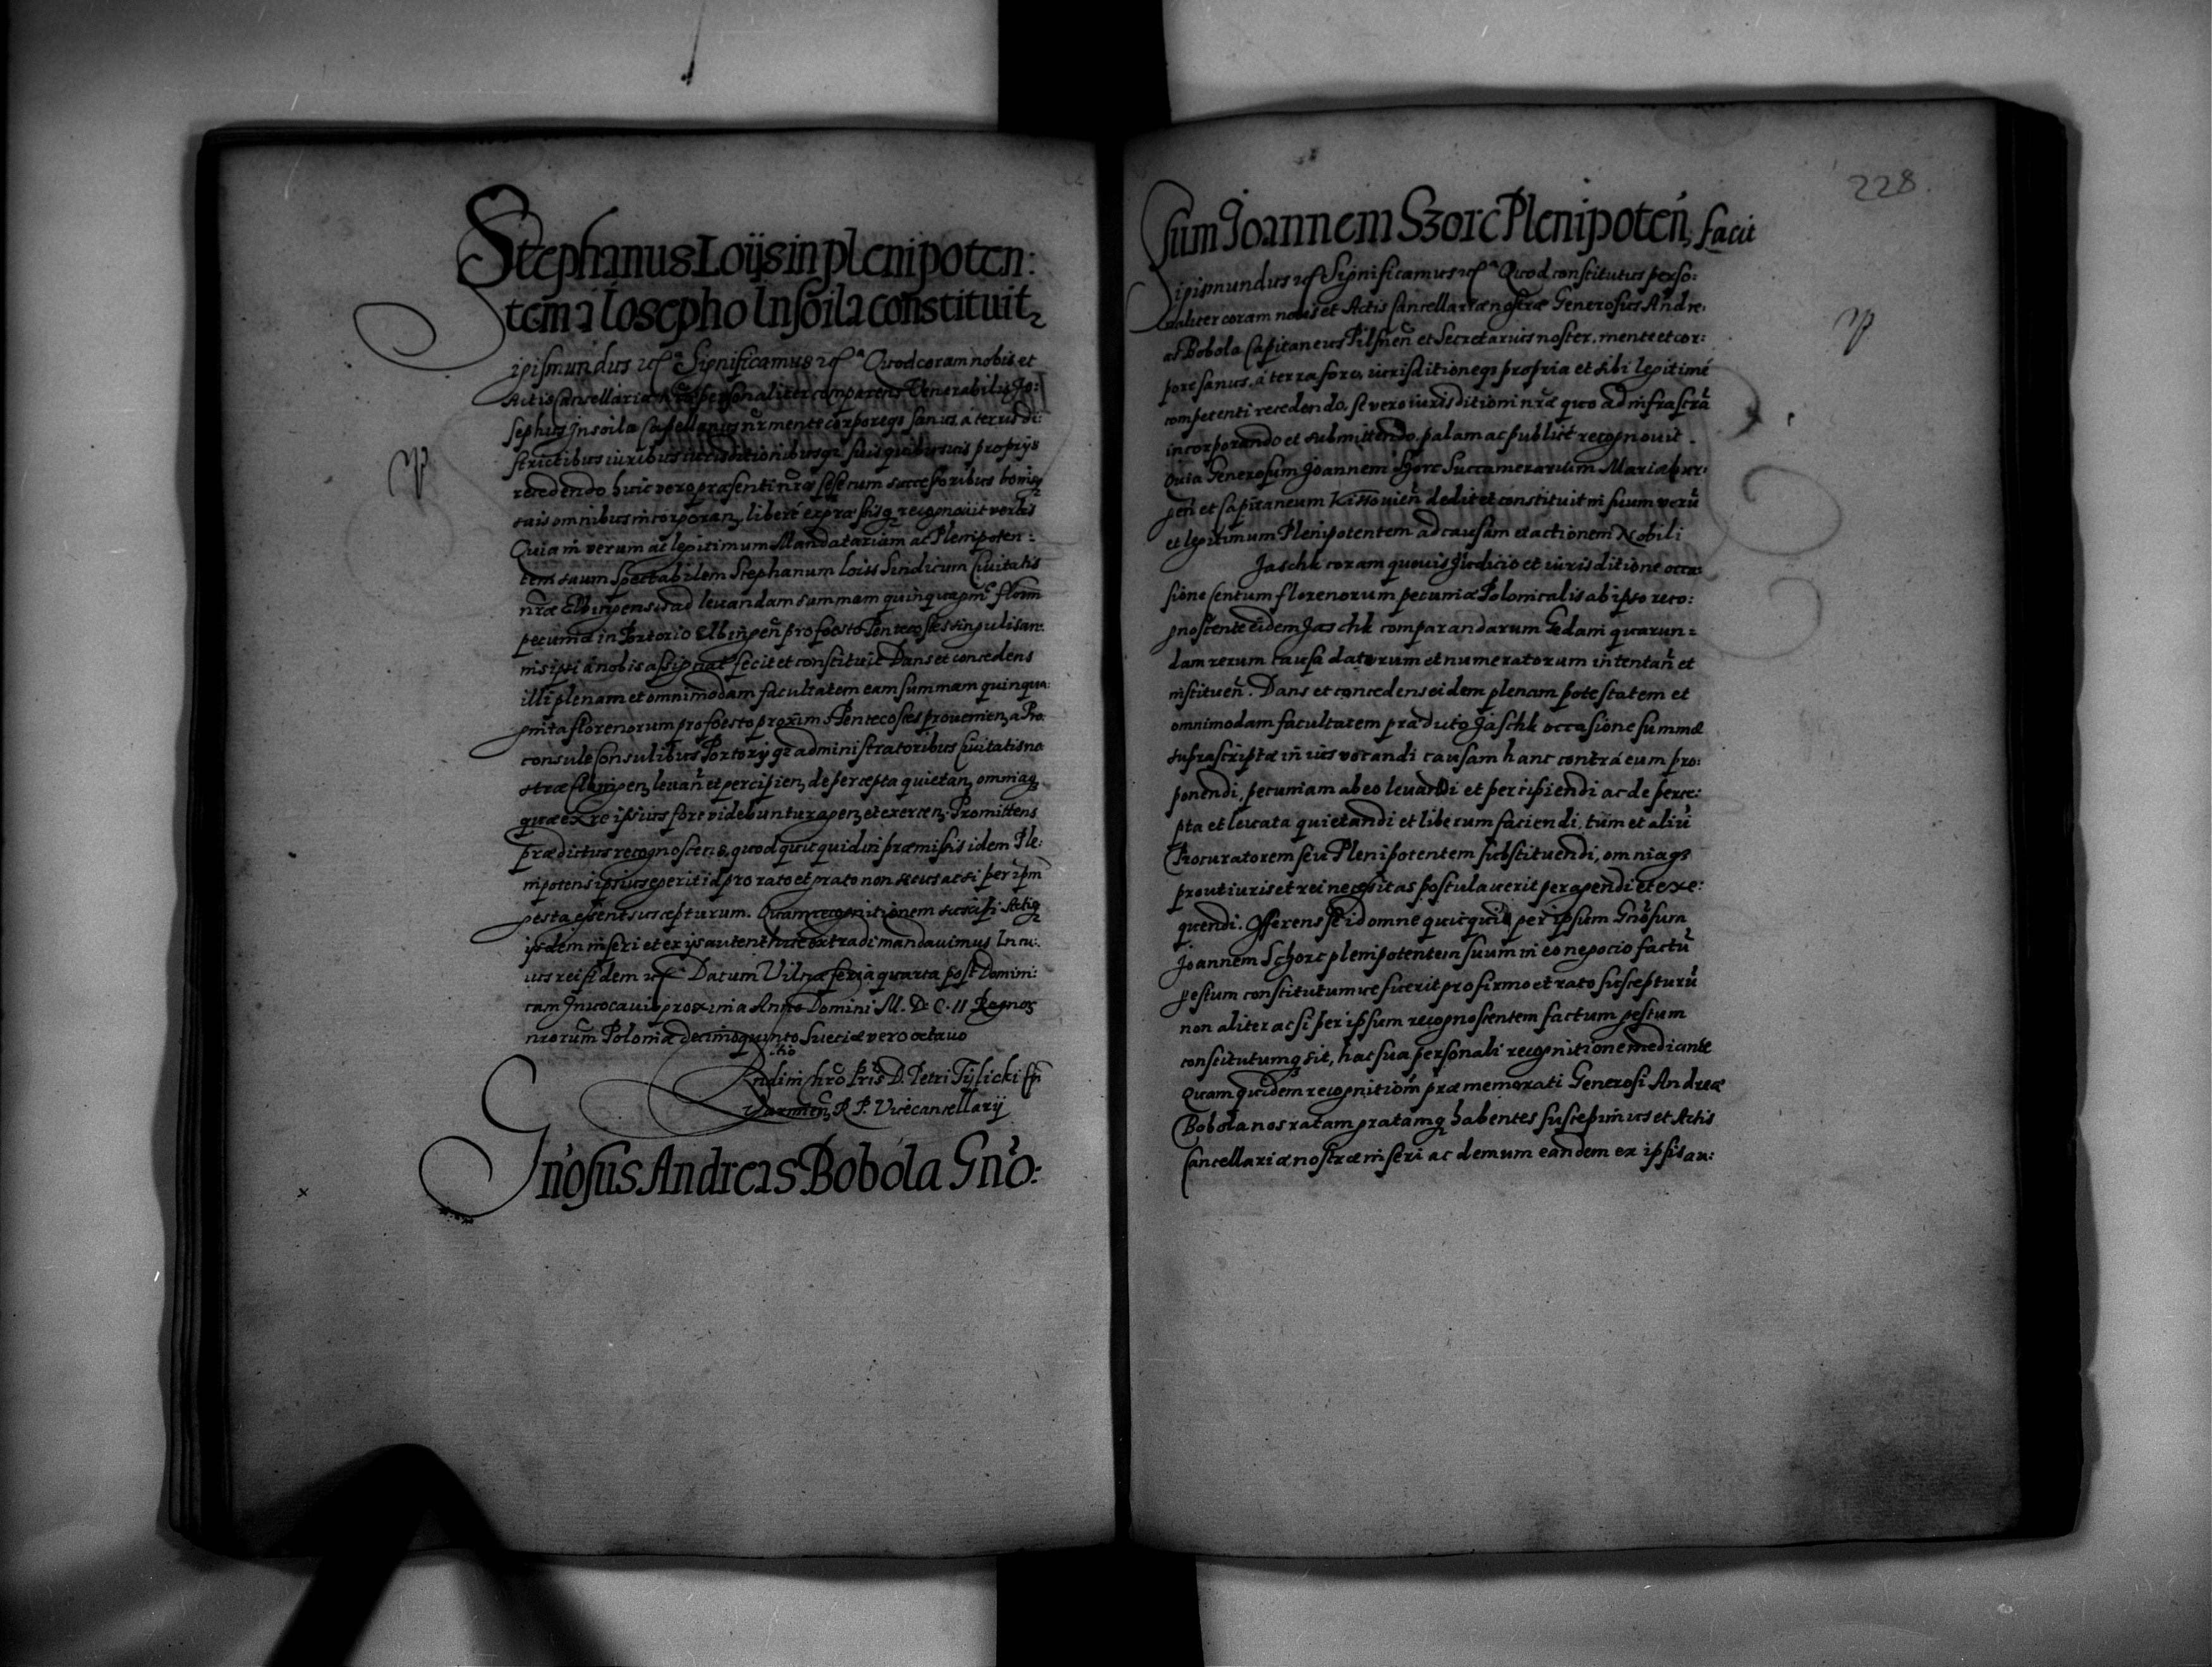 Stephanus Loijs in plenipoten:
tem a Iosepho Insoila constituit
Sigismundus etc. Significamus etc. Quod coram nobis et
Actis Cancellariæ nr̃æ personaliter comparens Venerabilis Jo:
sephus Insoila Capellanus nr̃ mente corporeq; sanus a terris di:
strictibus iuribus iurisditionibusq; suis quibusuis proprijs
recedendo huic vero præsenti nr̃æ sese cum successoribus bonisq;
suis omnibus incorporan, libere expræssisq; recognouit verbis
Quia in verum ac legitimum Mandatariam ac Plenipoten:
tem suum Spectabilem Stephanum Loiss Sindicum Ciuitatis
nr̃æ Elbingensis ad leuandam summam quinquagint florin
pecuniæ in Portorio Elbingen̄ pro foesto Pentecostes singulis an:
nis ipsi a nobis assignat fecit et constituit Dans et concedens
illi plenam et omnimodam facultatem eam summam quinqua:
ginta florenorum pro foesto proximo Pentecostes prouenien, a Pro
consule Consulibus Portorijq; administratoribus Ciuitatis no
stræ Elbingen, leuan̄ et percipien, de percepta quietan, omniaq;
quæ ex re ipsius fore videbuntur agen, et exercen. Promittens
prædictus recognoscens, quod quicquid in præmissis idem Ple:
nipotens ipsius egerit id pro rato et grato non secus ac si per ipm̄
gesta essent suscepturum. Quam recognitionem suscipi Actisq;
ijsdem inseri et ex ijs autenthice extradi mandauimus In cu:
ius rei fidem etc. Datum Vilnæ feria quarta post Domini:
cam Inuocauit proxima Anno Domini M. D. C. II Regnor
nrorum Poloniæ decimoquinto Sueciæ vero octauo
itio
Rndi in chrō Pris D. Petri Tÿlicki Epi
Varmien, R. P. Vicecancellarij
Gn̄osus Andreas Bobola Gn̄o:
228
sum Joannem Szorc Plenipoten, facit
Sigismundus etc. Significamus etc. Quod constitutus perso:
naliter coram nobis et Actis Cancellariæ nostræ Generosus Andre:
as Bobola Capitaneus Pilsnen̄ et Secretarius noster, mente et cor:
pore sanus, a terra foro, iurisditioneq; propria et sibi legitimé
competenti recedendo, se vero iurisditioni nr̃æ quo ad infrascrā
incorporando et submittendo, palam ac publicé recognouit.
Quia Generosum Joannem Szorc Succamerarium Mariæbur:
gen̄ et Capitaneum Kissouien̄ dedit et constituit in suum verū
et legitimum Plenipotentem ad causam et actionem Nobili
Jaschk coram quouis Judicio et iurisditione occa:
sione Centum florenorum pecuniæ Polonicalis ab ipso reco:
gnoscente eidem Jaschk comparandarum Gedani quarun=
dam rerum causa datorum et numeratorum intentan̄ et
instituen̄. Dans et concedens eidem plenam potestatem et
omnimodam facultatem prædicto Jaschk occasione summæ
suprascriptæ in ius vocandi causam hanc contrá eum pro:
ponendi, pecuniam ab eo leuandi et percipiendi ac de perce:
pta et leuata quietandi et liberum faciendi, tum et aliū
Procuratorem seu Plenipotentem substituendi, omniaq;
prout iuris et rei necessitas postulauerit peragendi et exe:
quendi. Offerens se id omne quicquid per ipsum Gn̄osum
Joannem Schorc plenipotentem suum in eo negocio factū
gestum constitutumue fuerit pro firmo et rato suscepturū
non aliter ac si per ipsum recognoscentem factum gestum
constitutumq; sit, hac sua personali recognitione mediante
Quam quidem recognitiom̄ præmemorati Generosi Andreæ
Bobola nos ratam gratamq; habentes suscepimus et Actis
Cancellariæ nostræ inseri ac demum eandem ex ipsis au: